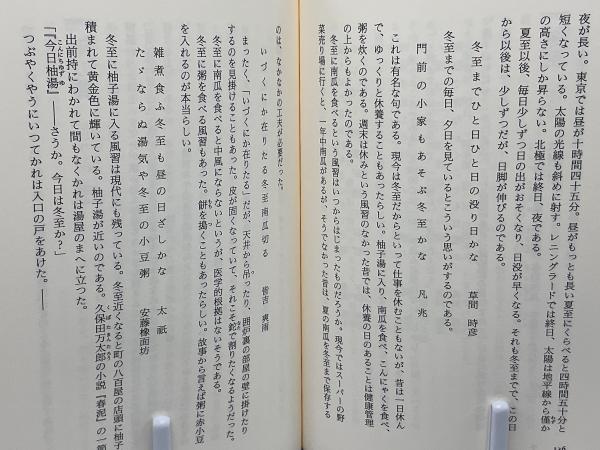 夜が長い。東京では昼が十時間四十五分。昼がもっとも長い夏至にくらべると四時間五十分と
短くなっている。太陽の光線も斜めに射す。レニングラードでは終日、太陽は地平線から僅か
の高さにしか昇らない。北極では終日、夜である。
夏至以後、毎日少しずつ日の出がおそくなり、日没が早くなる。それも冬至までで、この日
から以後は、少しずつだが、日脚が伸びるのである。
冬至までひと日ひと日の没り日かな 草間 時彦
冬至までの毎日、夕日を見ているとこういう思いがするのである。
門前の小家もあそぶ冬至かな 凡兆
これは有名な句である。現今は冬至だからといって仕事を休むこともないが、昔は一日休ん
で、ゆっくりと休養することもあったらしい。柚子湯に入り、南瓜を食べ、こんにゃくを食べ、
粥を炊くのである。週末は休みという風習のなかった昔では、休養の日のあることは健康管理
の上からもよかったのである。
冬至に南瓜を食べるという風習はいつからはじまったものだろうか。現今ではスーパーの野
菜売り場に行くと、一年中南瓜があるが、そうでなかった昔は、夏の南瓜を冬至まで保存する
のは、なかなかの工夫が必要だった。
いづくにか在りたる冬至南瓜切る 皆吉 爽雨
まったく、「いづくにか在りたる」だが、天井から吊ったり、囲炉裏の部屋の壁に掛けたり
するのを見掛けることもあった。皮が固くなっていて、それこそ鉈で割りたくなるようだった。
冬至に南瓜を食べると中風にならないというが、医学的根拠はないそうである。
冬至に粥を食べる風習もあった。餅を搗くこともあったらしい。故事から言えば粥に赤小豆
を入れるのが本当らしい。
雑煮食ふ冬至も昼の日ざしかな 太祇
たゞならぬ湯気や冬至の小豆粥 安藤橡面坊
冬至に柚子湯に入る風習は現代にも残っている。冬至近くなると町の八百屋の店頭に柚子
積まれて黄金色に輝いている。柚子湯が近いのである。久保田万太郎の小説『春泥』の一節
出前持にわかれて間もなくかれは湯屋のまへに立つた。
「『今日柚湯』――さうか。今日は冬至か？」
つぶやくやうにいつてかれは入口の戸をあけた。――